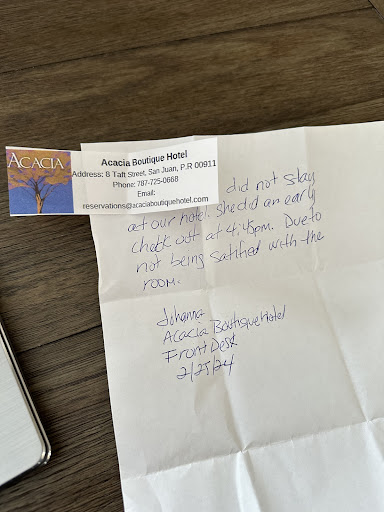 ACACIA
Acacia Boutique Hotel
Address: 8 Taft Street, San Juan, P.R 00911
Phone: 787-725-0668
Email:
reservations@acaciaboutiquehotel.com
did not stay
at our hotel. she did an early
check out at 4:45pm. Due to
not being satified with the
room.
Johanna
Acacia Boutique Hotel
Front Desk
2/25/24